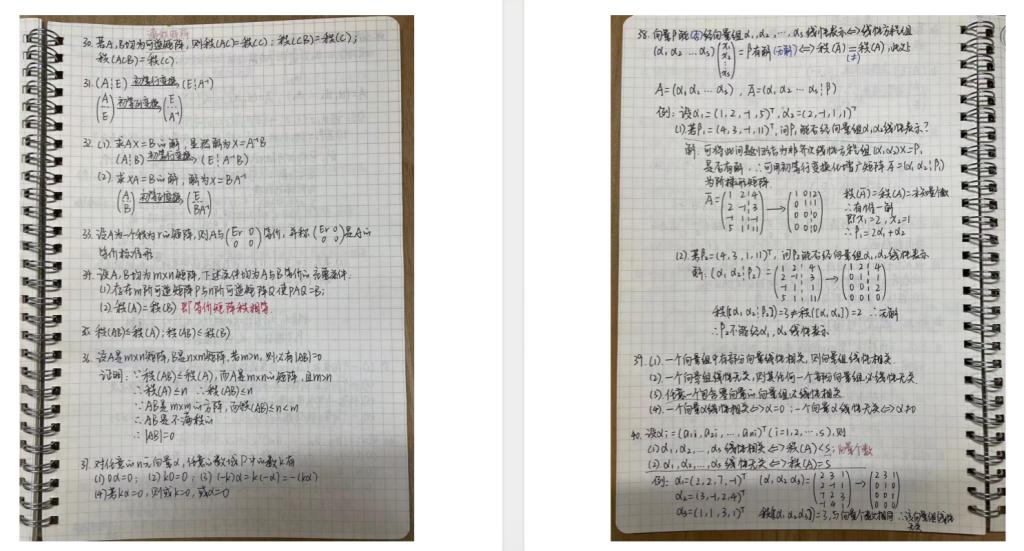 30. 若A,B均为可逆矩阵,则秩(AC)=秩(C);秩(CB)=秩(C);
秩(ACB)=秩(C).
31. (A¦E) 初等行变换→ (E¦A⁻¹)
(A/E) 初等列变换→ (E/A⁻¹)
32. (1). 求AX=B的解,显然解为X=A⁻¹B
(A¦B) 初等行变换→ (E¦A⁻¹B)
(2). 求XA=B的解,解为X=BA⁻¹
(A/B) 初等列变换→ (E/BA⁻¹)
33. 设A为一个秩为r的矩阵,则A与(Er 0 / 0 0)等价,并称(Er 0 / 0 0)是A的
等价标准形
34. 设A,B均为m×n矩阵,下述条件均为A与B等价的充要条件.
(1) 存在m阶可逆矩阵P与n阶可逆矩阵Q,使PAQ=B;
(2). 秩(A)=秩(B) 即等价矩阵秩相等.
35. 秩(AB)≤秩(A);秩(AB)≤秩(B)
36. 设A是m×n矩阵,B是n×m矩阵,若m>n,则必有|AB|=0
证明:∵秩(AB)≤秩(A),而A是m×n的矩阵,且m>n
∴秩(A)≤n ∴秩(AB)≤n
∵AB是m×m的方阵,而秩(AB)≤n<m
∴AB是不满秩的
∴|AB|=0
37. 对任意的n元向量α,任意的数域P中的数k有
(1) 0α=0; (2) k0=0; (3) (-k)α=k(-α)=-(kα)
(4) 若kα=0,则或k=0,或α=0
38. 向量β能(否)经向量组α₁,α₂,…,αs线性表示⇔线性方程组
(α₁ α₂ … αs)(x₁ x₂ ⋮ xs)=β有解(无解)⇔秩(A)=(≠)秩(Ā),此处
A=(α₁ α₂ … αs), Ā=(α₁ α₂ … αs¦β)
例:设α₁=(1,2,-1,5)ᵀ, α₂=(2,-1,1,1)ᵀ
(1) 若β₁=(4,3,-1,11)ᵀ,问β₁能否经向量组α₁,α₂线性表示?
解:可将此问题归结为非齐次线性方程组(α₁,α₂)x=β₁
是否有解,∴可用初等行变换化增广矩阵Ā=(α₁ α₂¦β₁)
为阶梯形矩阵
Ā=(1 2 4 / 2 -1 3 / -1 1 -1 / 5 1 11) → (1 0 2 / 0 1 1 / 0 0 0 / 0 0 0)
秩(Ā)=秩(A)=未知量个数
∴有唯一解
即x₁=2, x₂=1
∴β₁=2α₁+α₂
(2) 若β₂=(4,3,1,11)ᵀ,问β₂能否经向量组α₁,α₂线性表示
解:(α₁ α₂¦β₂)=(1 2 4 / 2 -1 3 / -1 1 1 / 5 1 11) → (1 2 4 / 0 1 1 / 0 0 2 / 0 0 0)
秩([α₁,α₂¦β₂])=3≠秩([α₁,α₂])=2 ∴无解
∴β₂不能经α₁,α₂线性表示
39. (1). 一个向量组中有部分向量线性相关,则向量组线性相关
(2). 一个向量组线性无关,则其任何一个部分向量组必线性无关
(3). 任意一个包含零向量的向量组必线性相关
(4). 一个向量α线性相关⇔α=0;一个向量α线性无关⇔α≠0
40. 设αi=(a1i,a2i,…,ani)ᵀ(i=1,2,…,s),则
(1) α₁,α₂,…,αs线性相关⇔秩(A)<s;向量个数
(2) α₁,α₂,…,αs线性无关⇔秩(A)=s
例:α₁=(2,2,7,-1)ᵀ (α₁ α₂ α₃)=(2 3 1 / 2 -1 1 / 7 2 3 / -1 4 1) → (2 3 1 / 0 1 0 / 0 0 1 / 0 0 0)
α₂=(3,-1,2,4)ᵀ
α₃=(1,1,3,1)ᵀ 秩([α₁,α₂,α₃])=3,与向量个数相同 ∴该向量组线性
无关